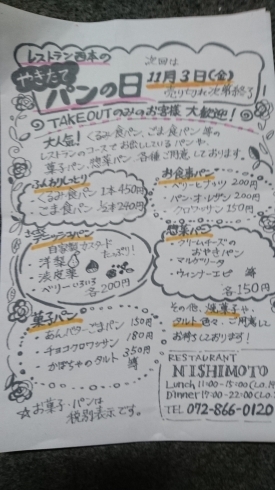 レストラン西本の
やきたて
パンの日
次回は
11月3日(金)
売り切れ次第終了
TAKEOUTのみのお客様 大歓迎!
大人気! くるみ食パン、ごま食パン 等の
レストランのコースでお出ししているパンや、
菓子パン 惣菜パン 各種ご用意しております。
ふんわりもっちり
くるみ食パン 1本 450円
ごま食パン 1/2本 240円
お食事パン
パン・オ・ルザン 200円
クロワッサン 150円
自家製カスタード
たっぷり!
洋梨
法定薬
ベリーいろいろ
各200円
惣菜パン
クリームチーズの
おやきパン
・マルゲリータ
・ウィンナーエピ 等
各150円
菓子パン
・あんバターごまパン 150円
・チョコクロワッサン 180円
・かぼちゃのタルト 350円
等
その他、焼菓子や
タルト 色々、ご用意して
お待ちしております!
☆お菓子・パンは
税別表示です。
RESTAURANT
NISHIMOTO
Lunch 11:00-15:00 (L.O.14
Dinner 17:00-22:00 (L.O.2
TEL 072-866-0120